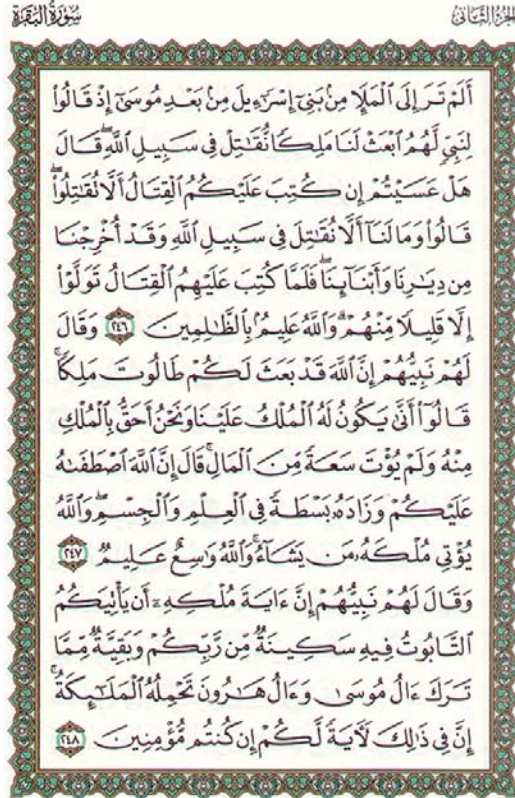 الجزء الثاني
سورة البقرة
أَلَمْ تَرَ إِلَى ٱلْمَلَإِ مِنۢ بَنِىٓ إِسْرَٰٓءِيلَ مِنۢ بَعْدِ مُوسَىٰٓ إِذْ قَالُوا۟
لِنَبِىٍّ لَّهُمُ ٱبْعَثْ لَنَا مَلِكًا نُّقَٰتِلْ فِى سَبِيلِ ٱللَّهِ ۖ قَالَ
هَلْ عَسَيْتُمْ إِن كُتِبَ عَلَيْكُمُ ٱلْقِتَالُ أَلَّا تُقَٰتِلُوا۟ ۖ
قَالُوا۟ وَمَا لَنَآ أَلَّا نُقَٰتِلَ فِى سَبِيلِ ٱللَّهِ وَقَدْ أُخْرِجْنَا
مِن دِيَٰرِنَا وَأَبْنَآئِنَا ۖ فَلَمَّا كُتِبَ عَلَيْهِمُ ٱلْقِتَالُ تَوَلَّوْا۟
إِلَّا قَلِيلًا مِّنْهُمْ ۗ وَٱللَّهُ عَلِيمٌۢ بِٱلظَّٰلِمِينَ ٢٤٦ وَقَالَ
لَهُمْ نَبِيُّهُمْ إِنَّ ٱللَّهَ قَدْ بَعَثَ لَكُمْ طَالُوتَ مَلِكًا ۚ
قَالُوٓا۟ أَنَّىٰ يَكُونُ لَهُ ٱلْمُلْكُ عَلَيْنَا وَنَحْنُ أَحَقُّ بِٱلْمُلْكِ
مِنْهُ وَلَمْ يُؤْتَ سَعَةً مِّنَ ٱلْمَالِ ۚ قَالَ إِنَّ ٱللَّهَ ٱصْطَفَىٰهُ
عَلَيْكُمْ وَزَادَهُۥ بَسْطَةً فِى ٱلْعِلْمِ وَٱلْجِسْمِ ۖ وَٱللَّهُ
يُؤْتِى مُلْكَهُۥ مَن يَشَآءُ ۚ وَٱللَّهُ وَٰسِعٌ عَلِيمٌ ٢٤٧
وَقَالَ لَهُمْ نَبِيُّهُمْ إِنَّ ءَايَةَ مُلْكِهِۦٓ أَن يَأْتِيَكُمُ
ٱلتَّابُوتُ فِيهِ سَكِينَةٌ مِّن رَّبِّكُمْ وَبَقِيَّةٌ مِّمَّا
تَرَكَ ءَالُ مُوسَىٰ وَءَالُ هَٰرُونَ تَحْمِلُهُ ٱلْمَلَٰٓئِكَةُ ۚ
إِنَّ فِى ذَٰلِكَ لَءَايَةً لَّكُمْ إِن كُنتُم مُّؤْمِنِينَ ٢٤٨